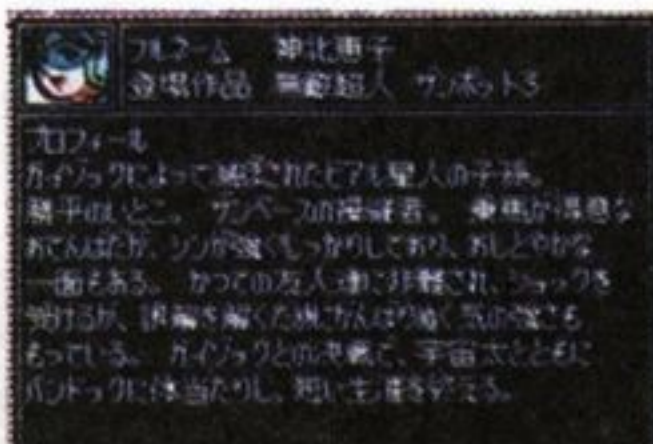 フルネーム 神北恵子
登場作品 無敵超人 ザンボット3
プロフィール
ガイゾックによって滅ぼされたビアル星人の子孫。
勝平のいとこ。 ザンベースの操縦者。 乗馬が得意な
おてんばだが、シンが強くしっかりしており、おしとやかな
一面もある。 かつての友人達に非難され、ショックを
受けるが、誤解を解くためにがんばりぬく気の強さも
もっている。 ガイゾックとの決戦で、宇宙太とともに
バンドックに体当たりし、短い生涯を終える。